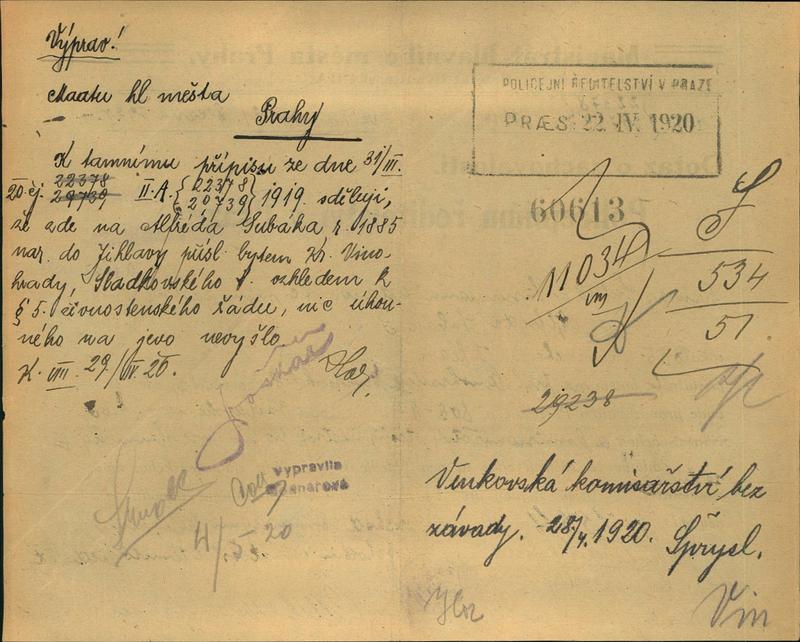 Výprav!
Maatu hl města
Prahy
K tamnímu přípisu ze dne 31/III.
20. čj. 22378 29739 II.A. {22378 20739} 1919. sděluji,
že zde na Alfréda Gubáka r. 1885
nar. do Jihlavy přísl. bytem Kr. Vino-
hrady, Sladkovského 1. vzhledem k
§ 5. živnostenského řádu, nic úhon-
ného na jevo nevyšlo
K. VIII. 29/IV. 20.
Vypravila
4/5 20
POLICEJNÍ ŘEDITELSTVÍ V PRAZE
PRÆS. 22. IV. 1920
60613
11034
534
51.
29238
Venkovská komisařství bez
závady. 28/4. 1920. Šprysl.